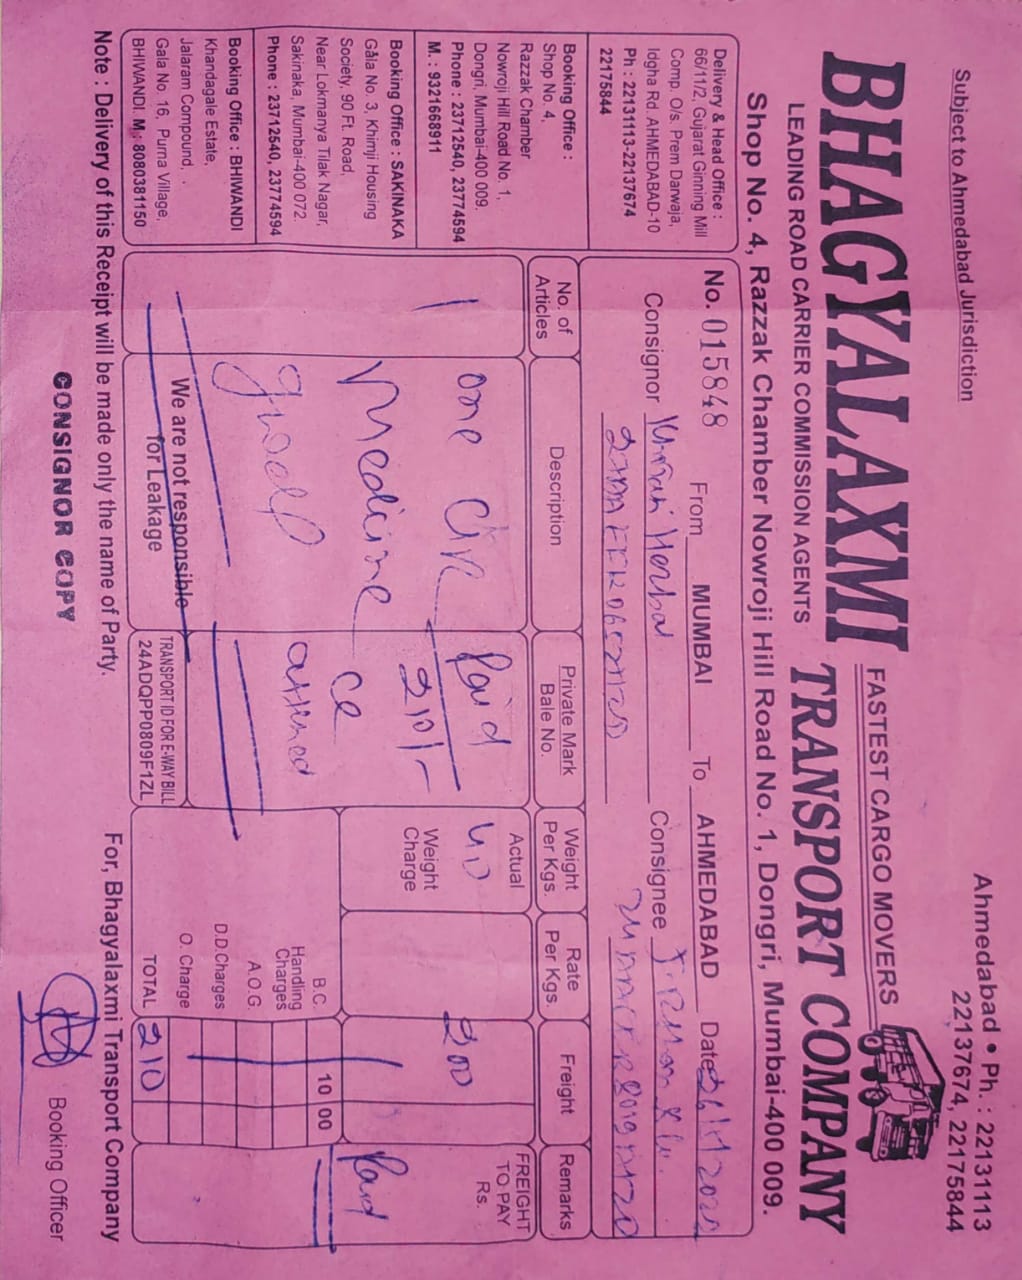 Subject to Ahmedabad Jurisdiction
Ahmedabad • Ph. : 22131113
22137674, 22175844
BHAGYALAXMI
FASTEST CARGO MOVERS
TRANSPORT COMPANY
LEADING ROAD CARRIER COMMISSION AGENTS
Shop No. 4, Razzak Chamber Nowroji Hill Road No. 1, Dongri, Mumbai-400 009.
Delivery & Head Office :
66/11/2, Gujarat Ginning Mill
Comp. O/s. Prem Darwaja,
Idgha Rd. AHMEDABAD-10
Ph : 22131113-22137674
22175844
Booking Office :
Shop No. 4,
Razzak Chamber
Nowroji Hill Road No. 1,
Dongri, Mumbai-400 009.
Phone : 23712540, 23774594
M. : 9321668911
Booking Office : SAKINAKA
Gala No. 3, Khimji Housing
Society, 90 Ft. Road,
Near Lokmanya Tilak Nagar,
Sakinaka, Mumbai-400 072.
Phone : 23712540, 23774594
Booking Office : BHIWANDI
Khandagale Estate,
Jalaram Compound,
Gala No. 16, Purna Village,
BHIWANDI. M.: 8080381150
No. 015848 From MUMBAI To AHMEDABAD Date
Consignor Herbal Consignee
No. of Articles
Description
Private Mark Bale No.
Weight Per Kgs.
Rate Per Kgs.
Freight
Remarks
1
one
Medicine
good
Paid
210/-
Actual
40
Weight Charge
200
FREIGHT TO PAY Rs.
Paid
B.C. 10 00
Handling Charges
A.O.G.
D.D.Charges
O. Charge
TOTAL 210
We are not responsible
for Leakage
TRANSPORT ID FOR E-WAY BILL
24ADQPP0809F1ZL
Note : Delivery of this Receipt will be made only the name of Party.
For, Bhagyalaxmi Transport Company
CONSIGNOR COPY
Booking Officer